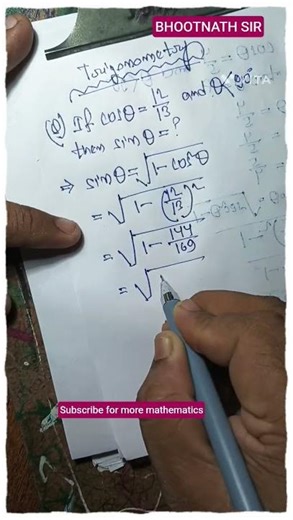 BHOOTNATH SIR
Trigonometry
(Q) If cosθ = 12/13 and θ < 90°
then sinθ = ?
⇒ sinθ = √(1 - cos²θ)
= √(1 - (12/13)²)
= √(1 - 144/169)
= √
Subscribe for more mathematics